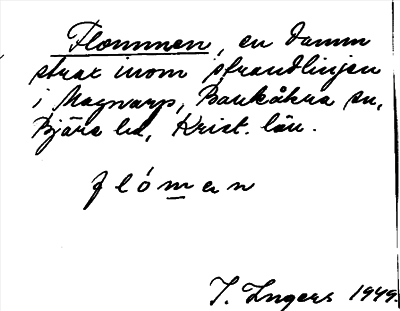 Flommen, en damm
strax inom strandlinjen
i Magnarp, Barkåkra sn,
Bjäre hd, Krist. län.
flómen
I. Ingers 1949.